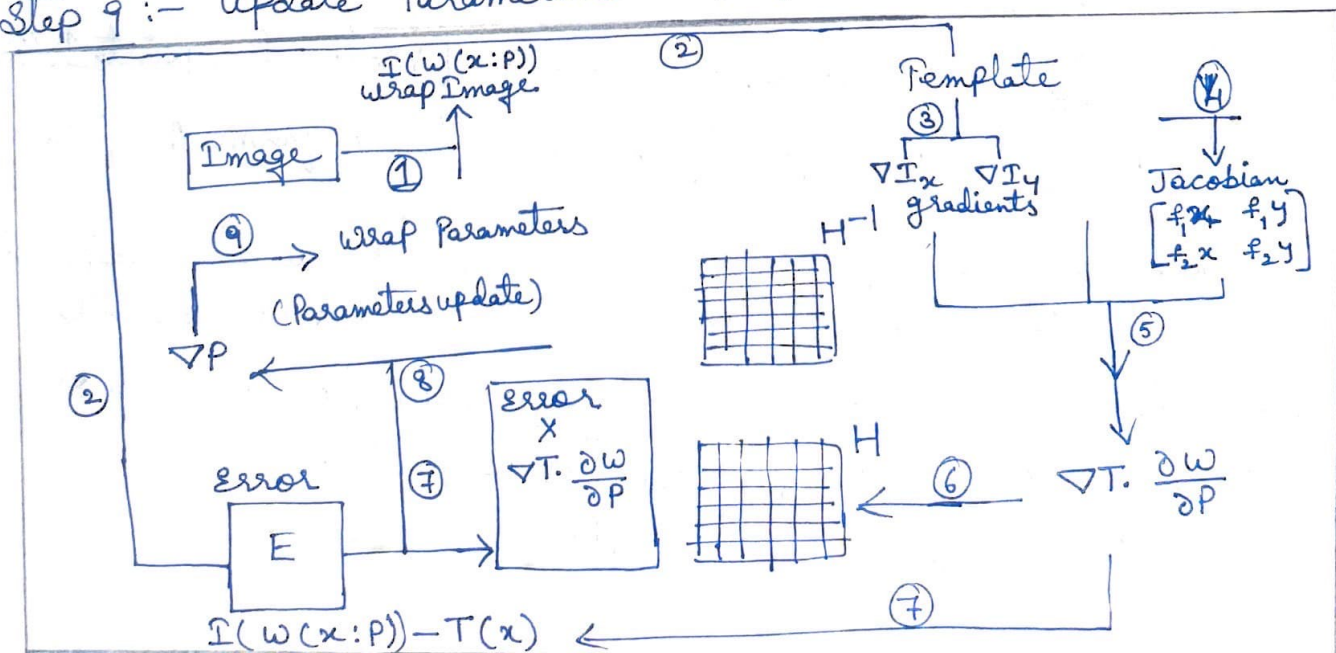 Step 9 :- Update Parame
②
I(W(x:P))
wrap Image
Template
Image
①
③
∇Ix ∇Iy
gradients
Jacobian
[f₁x f₁y
f₂x f₂y]
⑨
wrap Parameters
(Parameters update)
H⁻¹
⑤
∇P
⑧
②
Error
X
∇T. ∂W/∂P
H
⑥
∇T. ∂W/∂P
Error
⑦
E
⑦
I(W(x:P))-T(x)